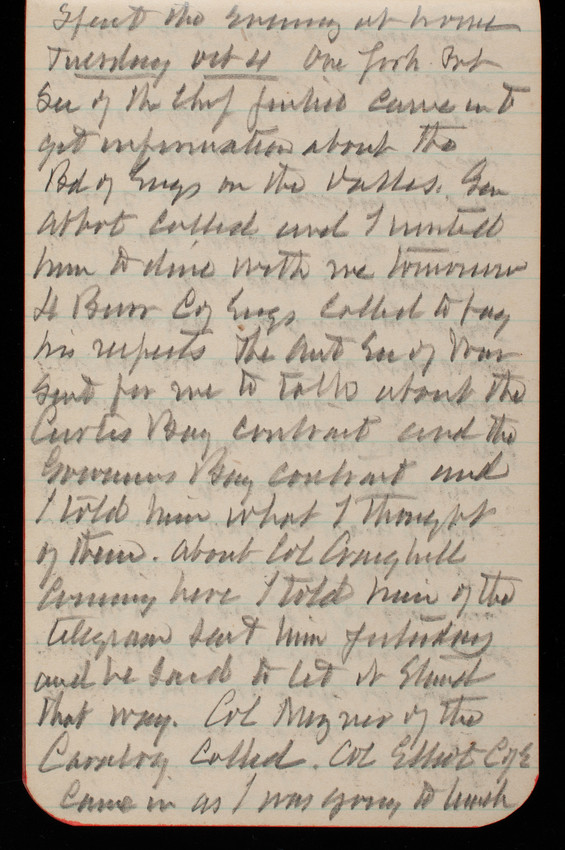 Spent the evening at home
Tuesday Oct 4 One
Sec of the Chf came in to
get information about the
Bd of Engs on the Dalles. Gen
Abbot called and I invited
him to dine with me tomorrow
Lt Burr C of Engs called to pay
his respects The Sec of War
sent for me to talk about the
Curtis Bay contract and the
Gowanus Bay contract and
I told him what I thought
of them. About Col Craighill
coming here I told him of the
telegram sent him yesterday
and he said to let it stand
that way. Col of the
Cavalry called. Col Elliot C of E
came in as I was going to lunch